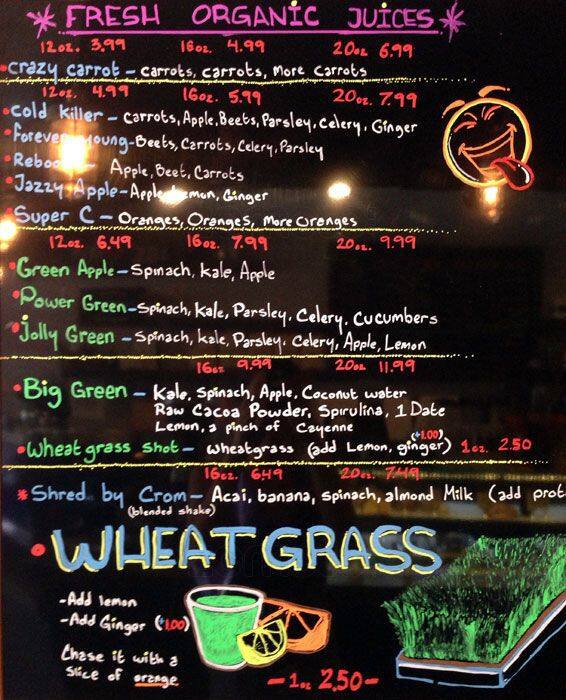 * FRESH ORGANIC JUICES *
12oz. 3.99 16oz. 4.99 20oz 6.99
• Crazy Carrot – Carrots, Carrots, More Carrots
12oz. 4.99 16oz. 5.99 20oz. 7.99
• Cold Killer – Carrots, Apple, Beets, Parsley, Celery, Ginger
• Forever young – Beets, Carrots, Celery, Parsley
• Reboot – Apple, Beet, Carrots
• Jazzy Apple – Apple, Lemon, Ginger
Super C – Oranges, Oranges, More Oranges
12oz. 6.49 16oz. 7.99 20oz. 9.99
• Green Apple – Spinach, Kale, Apple
• Power Green – Spinach, Kale, Parsley, Celery, Cucumbers
• Jolly Green – Spinach, Kale, Parsley, Celery, Apple, Lemon
16oz 9.99 20oz 11.99
• Big Green – Kale, Spinach, Apple, Coconut water
Raw Cacoa Powder, Spirulina, 1 Date
Lemon, a pinch of Cayenne
• Wheat grass shot – wheatgrass (add Lemon, ginger) (+1.00) 1oz. 2.50
16oz. 6.49 20oz. 7.49
* Shred by Crom – Acai, banana, spinach, almond Milk (add prot
(blended shake)
• WHEAT GRASS
- Add lemon
- Add Ginger (+1.00)
Chase it with a
Slice of orange
– 1oz 2.50 –